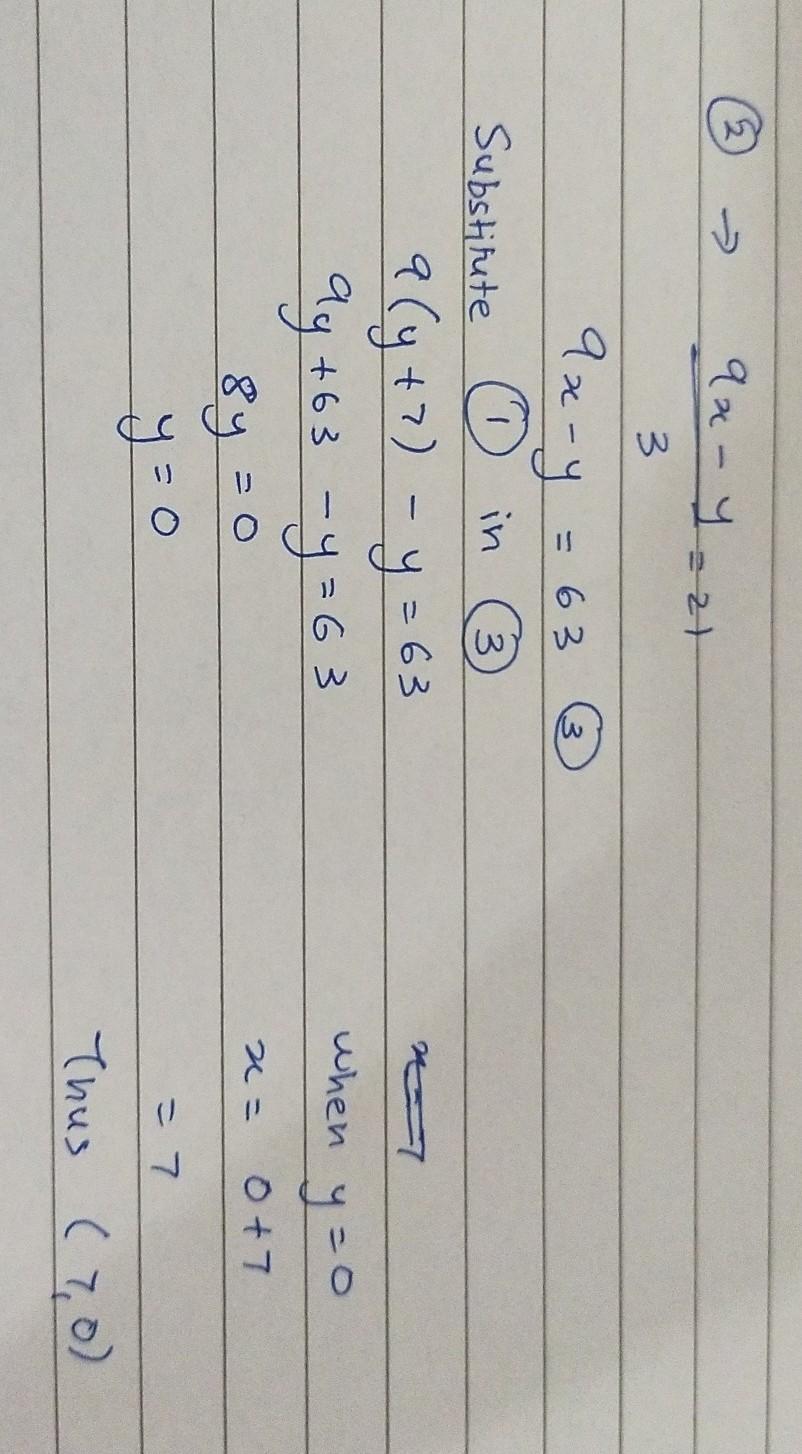 ② → 9x - y = 21
3
9x - y = 63 ③
Substitute ① in ③
9(y + 7) - y = 63
9y + 63 - y = 63
8y = 0
y = 0
when y = 0
x = 0 + 7
= 7
Thus (7,0)